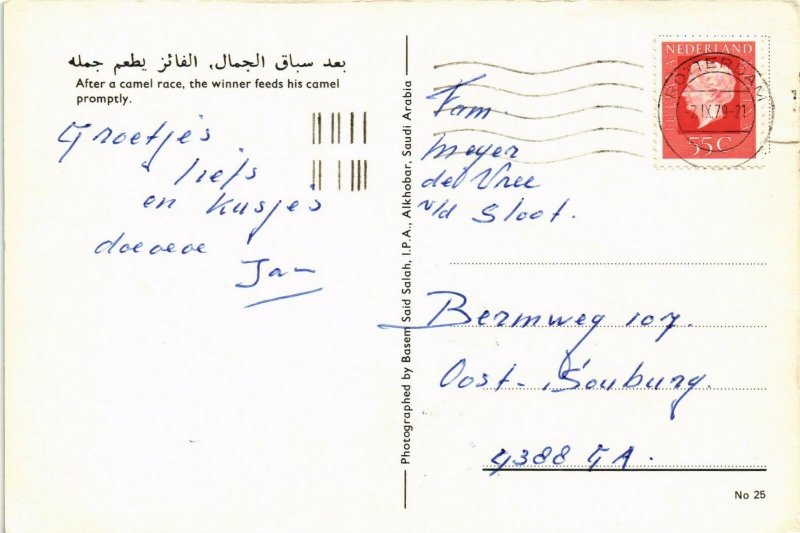 بعد سباق الجمال، الفائز يطعم جمله
After a camel race, the winner feeds his camel
promptly.
Groetjes
liefs
en kusjes
doeoeoe
Jan
Photographed by Basem Said Salah, I.P.A., Alkhobar, Saudi Arabia
NEDERLAND
55C
ROTTERDAM
-7.IX.79-21
Fam.
Meyer
de Vree
v/d Sloot.
Bermweg 107.
Oost-Souburg.
4388 GA.
No 25